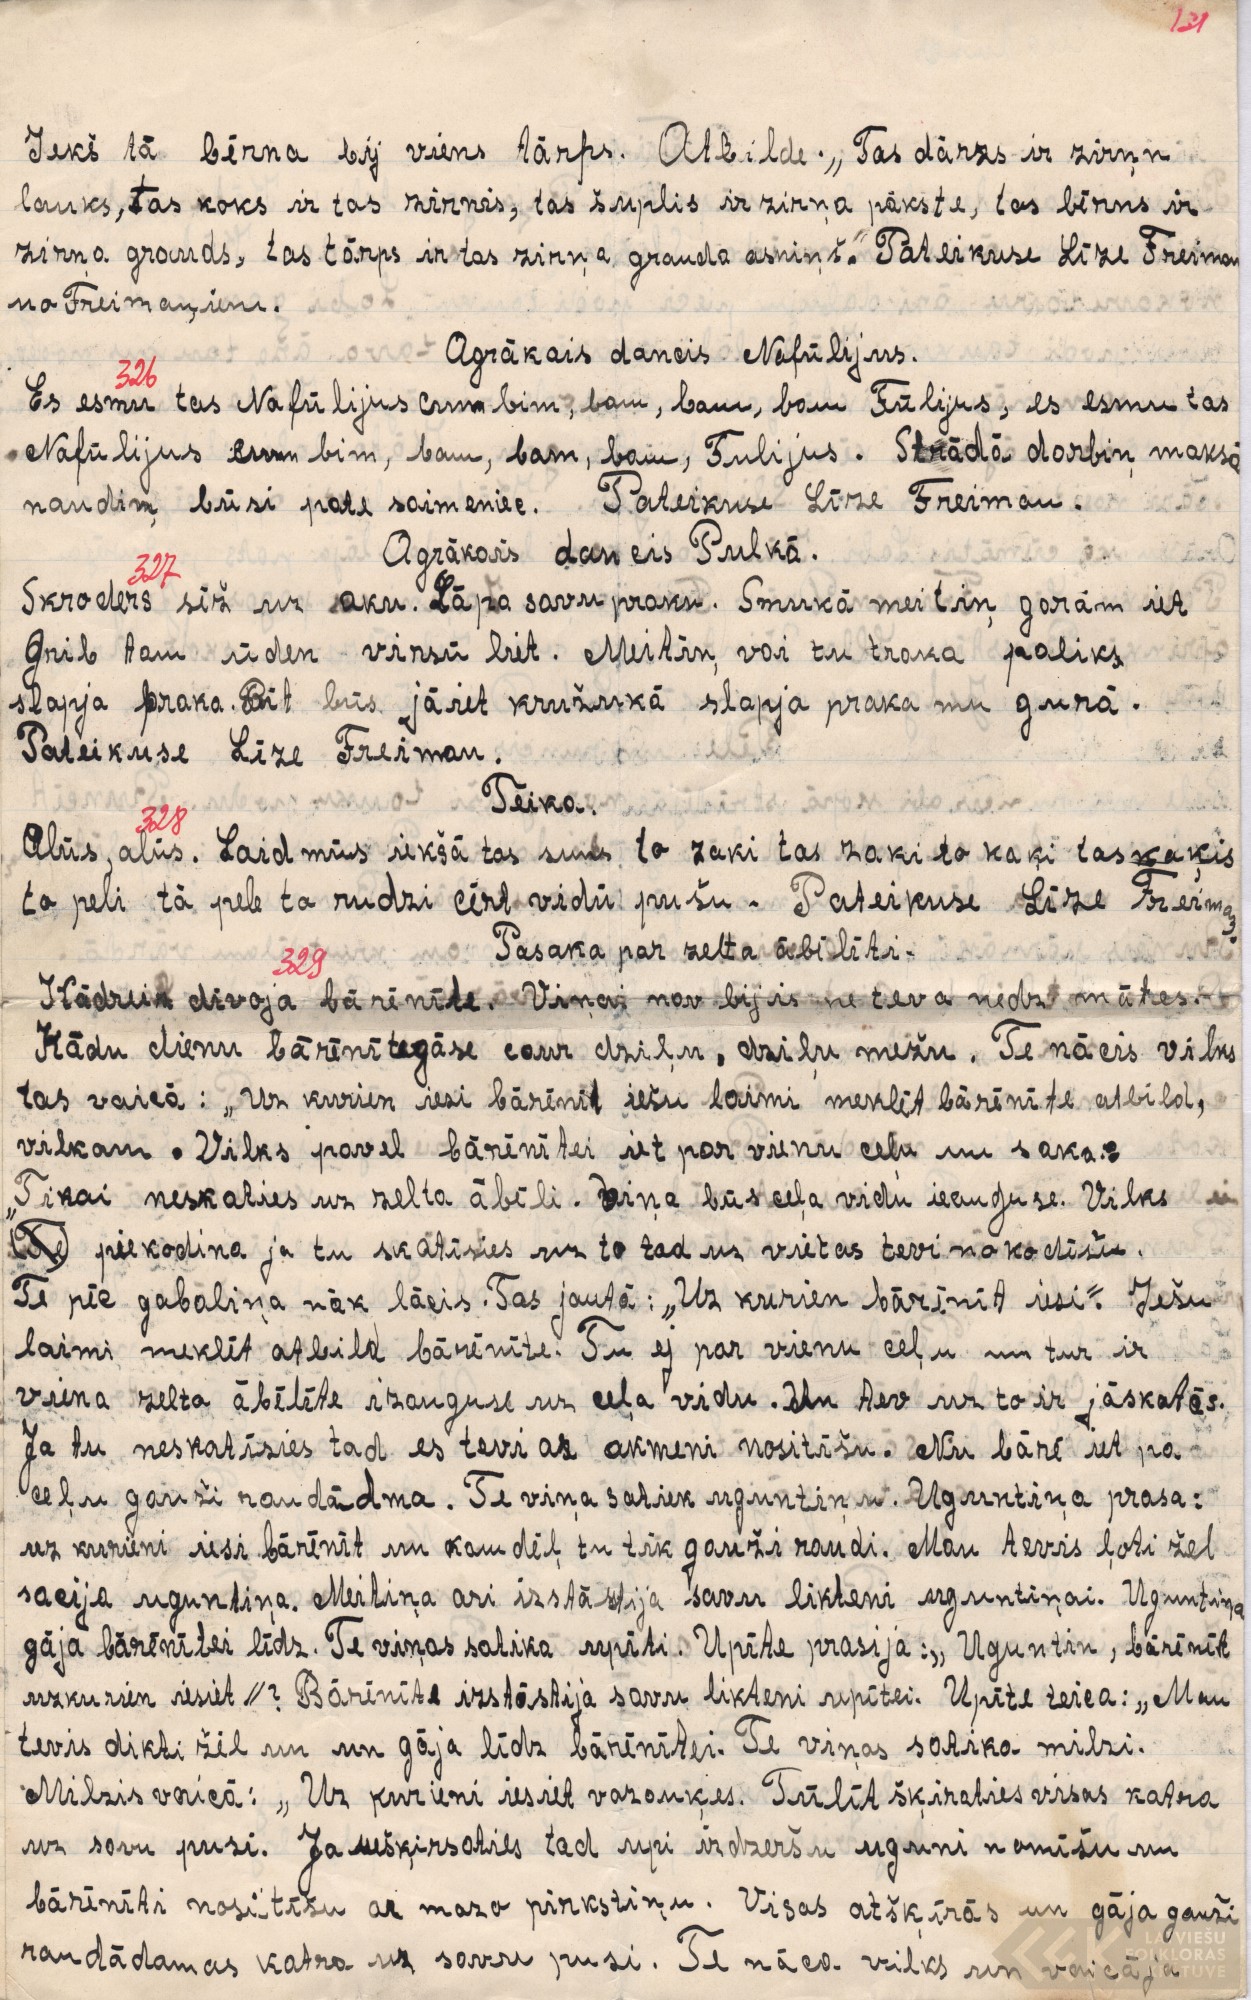 131
Iekš tā bērna bij viens tārps. Atbilde. „Tas dārzs ir zirņn
lauks, tas koks ir tas zirnis, tas šuplis ir zirņa pākste, tas bērns ir
zirņa grauds, tas tārps ir tas zirņa grauda asniņš." Pateikuse Līze Freiman
no Freimaņiem.
Agrākais dancis Nafūlijus.
326
Es esmu tas Nafūlijus cum bim, bam, bam, bam Fūlijus, es esmu tas
Nafūlijus cum bim, bam, bam, bam, Fulijus. Strādā darbiņ maksā
naudiņ būsi pate saimeniec. Pateikuse Līze Freiman.
Agrākais dancis Pulkā.
327
Skroders sīž uz aku. Lāpa savu praku. Smukā meitiņ garām iet
Grib tam ūden virsū liet. Meitiņ vai tu traka paliks
slapja praka. Rīt būs jāiet kružukā slapja praka mugurā.
Pateikuse Līze Freiman.
Teika.
328
Alūs, alūs. Laid mūs iekšā tas suns to zaķi tas zaķi to kaķi tas kaķis
to peli tā pele to rudzi cērt vidū pušu. Pateikuse Līze Freiman.
Pasaka par zelta ābēlīti.
329
Kādreiz dīvoja bārēnīte. Viņai nav bijis ne teva nedz mātes.
Kādu dienu bārēnīte gāse caur dziļu, dziļu mežu. Te nācis vilks
tas vaicā: „Uz kurien iesi bārēnīt iešu laimi meklēt bārēnīte atbild,
vilkam. Vilks pavel bārēnītei iet par vienu ceļu un saka:
„Tikai neskaties uz zelta ābēli. Viņa būs ceļa vidu ieauguse. Vilks
piekodina ja tu skatīsies uz to tad uz vietas tevi nokodīšu.
Te pēc gabaliņa nāk lācis. Tas jautā: „Uz kurien bārēnīt iesi". Iešu
laimi meklēt atbild bārēnīte. Tu ej par vienu ceļu un tur ir
viena zelta ābēlīte izauguse uz ceļa vidu. Un tev uz to ir jāskatās.
Ja tu neskatīsies tad es tevi ar akmeni nositīšu. Nu bārē iet pa
ceļu gauži raudādma. Te viņa satiek uguntiņu. Uguntiņa prasa:
uz kurieni iesi bārēnīt un kamdēļ tu tik gauži raudi. Man tevis ļoti žel
sacija uguntiņa. Meitiņa ari izstāstija savu likteni uguntiņai. Uguntiņa
gāja bārēnītei līdz. Te viņas satika upīti. Upīte prasija: „Uguntin, bārēnīt
uzkurien iesiet"? Bārēnīte izstāstija savu likteni upītei. Upīte teica: „Man
tevis dikti žēl un un gāja līdz bārēnītei. Te viņas satika milzi.
Milzis vaicā: „Uz kurieni iesiet vazaņķes. Tūlīt šķiraties visas katra
uz savu pusi. Ja nešķirsaties tad upi izdzeršu uguni nomīšu un
bārēnīti nositīšu ar mazo pirkstiņu. Visas atšķīrās un gāja gauži
raudādamas katra uz savu pusi. Te nāca vilks un vaicāja
LATVIEŠU
FOLKLORAS
KRĀTUVE